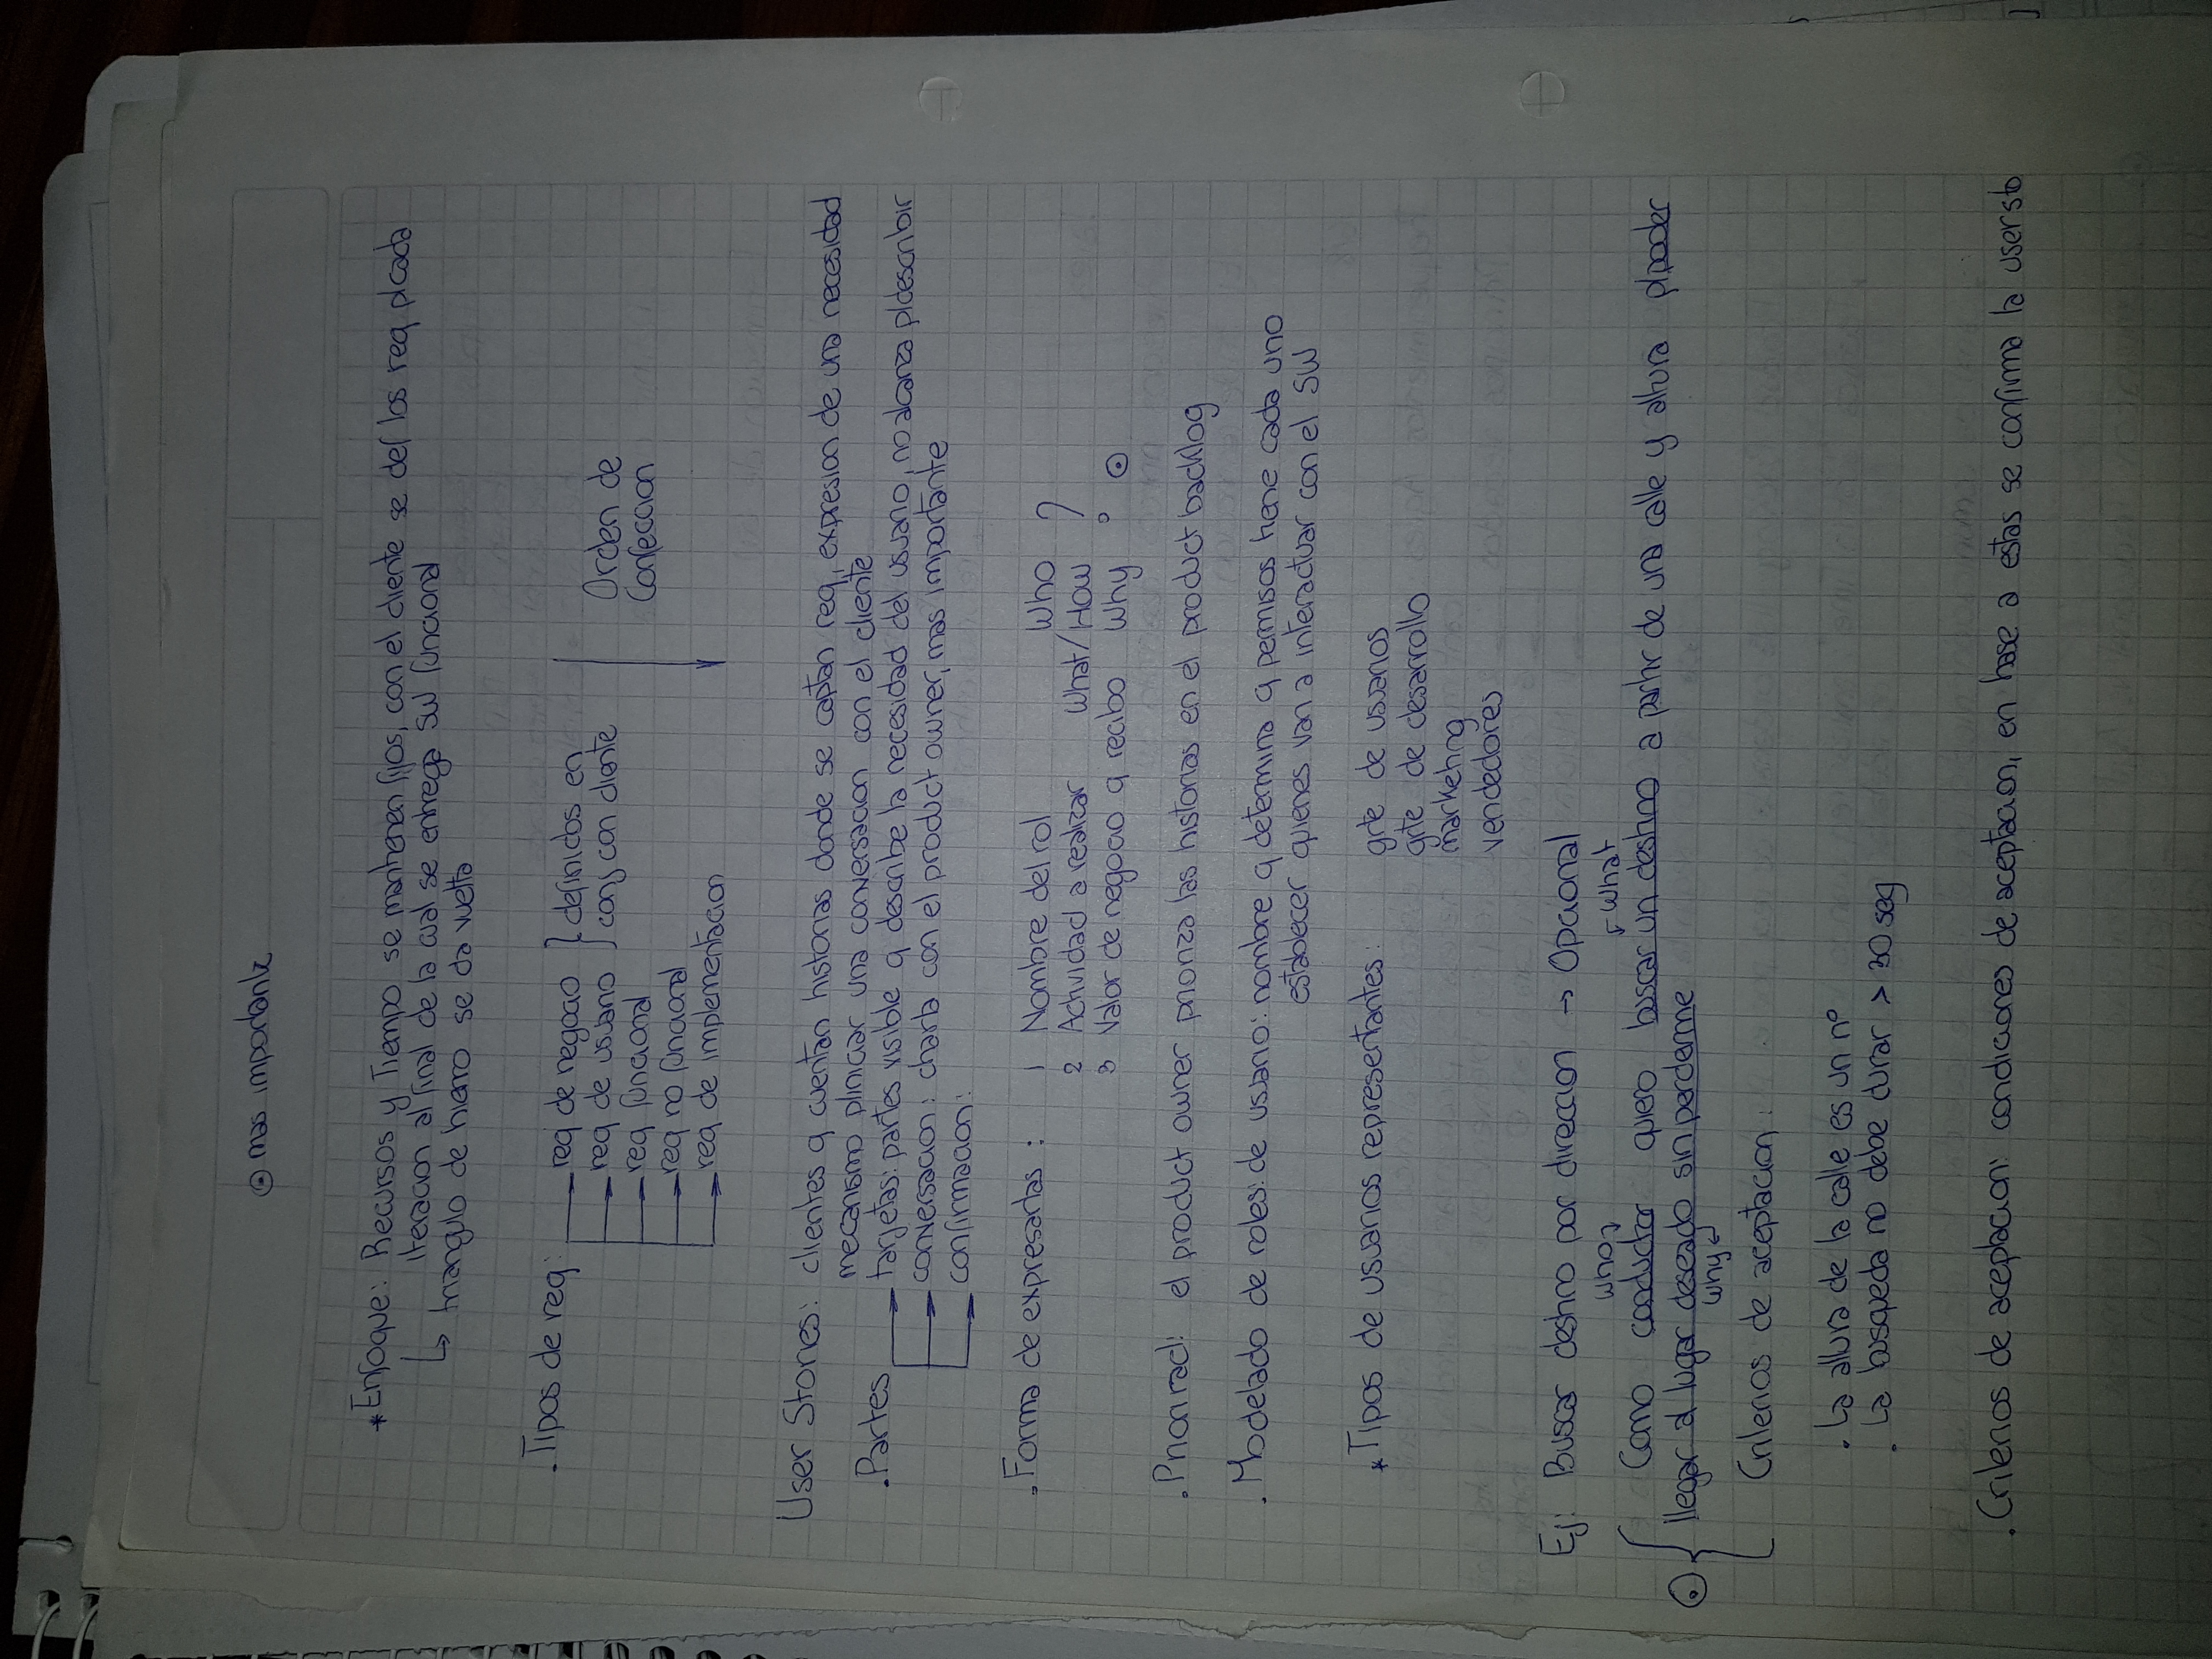 ⊙ mas importante
* Enfoque: Recursos y Tiempo se mantienen fijos, con el cliente se def los req p/cada
iteracion al final de la cual se entrega SW funcional
↳ triangulo de hierro se da vuelta
. Tipos de req:
→ req de negocio } definidos en
→ req de usuario } conj con cliente
→ req funcional
→ req no funcional
→ req de implementacion
Orden de
Confeccion
User Stories: clientes q cuentan historias donde se captan req, expresion de una necesidad
mecanismo p/iniciar una conversacion con el cliente
. Partes → tarjetas: partes visible q describe la necesidad del usuario, no alcanza p/describir
→ conversacion: charla con el product owner, mas importante
→ confirmacion:
. Forma de expresarlas : 1 Nombre del rol Who ?
2 Actividad a realizar What/How
3 Valor de negocio q recibo Why ⊙
. Prioirad: el product owner prioriza las historias en el product backlog
. Modelado de roles: de usuario: nombre q determina q permisos tiene cada uno
establecer quienes van a interactuar con el SW
* Tipos de usuarios representantes: grte de usuarios
grte de desarrollo
marketing
vendedores
Ej: Buscar destino por direccion → Opcional
who what
Como conductor quiero buscar un destino a partir de una calle y altura p/poder
⊙ { llegar al lugar deseado sin perderme
why
Criterios de aceptacion:
. La altura de la calle es un nº
. La busqueda no debe durar > 30 seg
. Criterios de aceptacion: condiciones de aceptacion, en base a estas se confirma la user sto